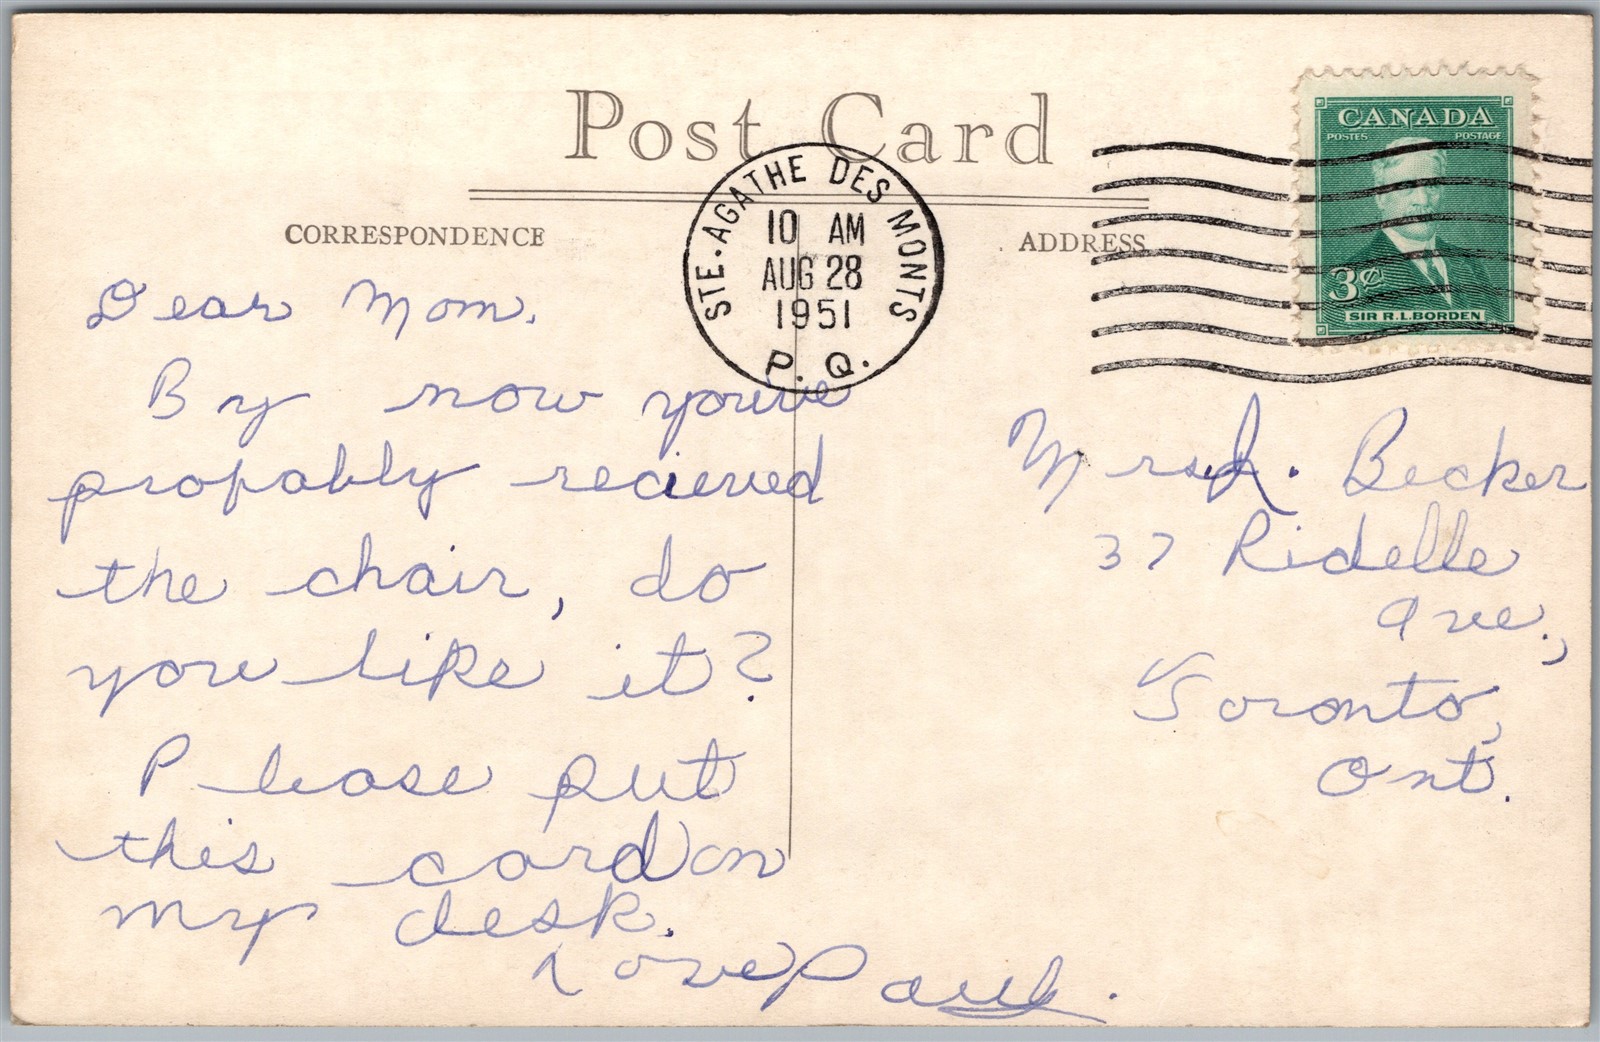 Post Card
CORRESPONDENCE
ADDRESS
STE. AGATHE DES MONTS
10 AM
AUG 28
1951
P. Q.
CANADA
POSTES POSTAGE
3¢
SIR R.L.BORDEN
Dear Mom.
By now you've
propably recieved
the chair, do
you like it?
Please put
this card on
my desk.
Love Paul.
Mrs. Becker
37 Ridelle
Ave.,
Toronto,
Ont.